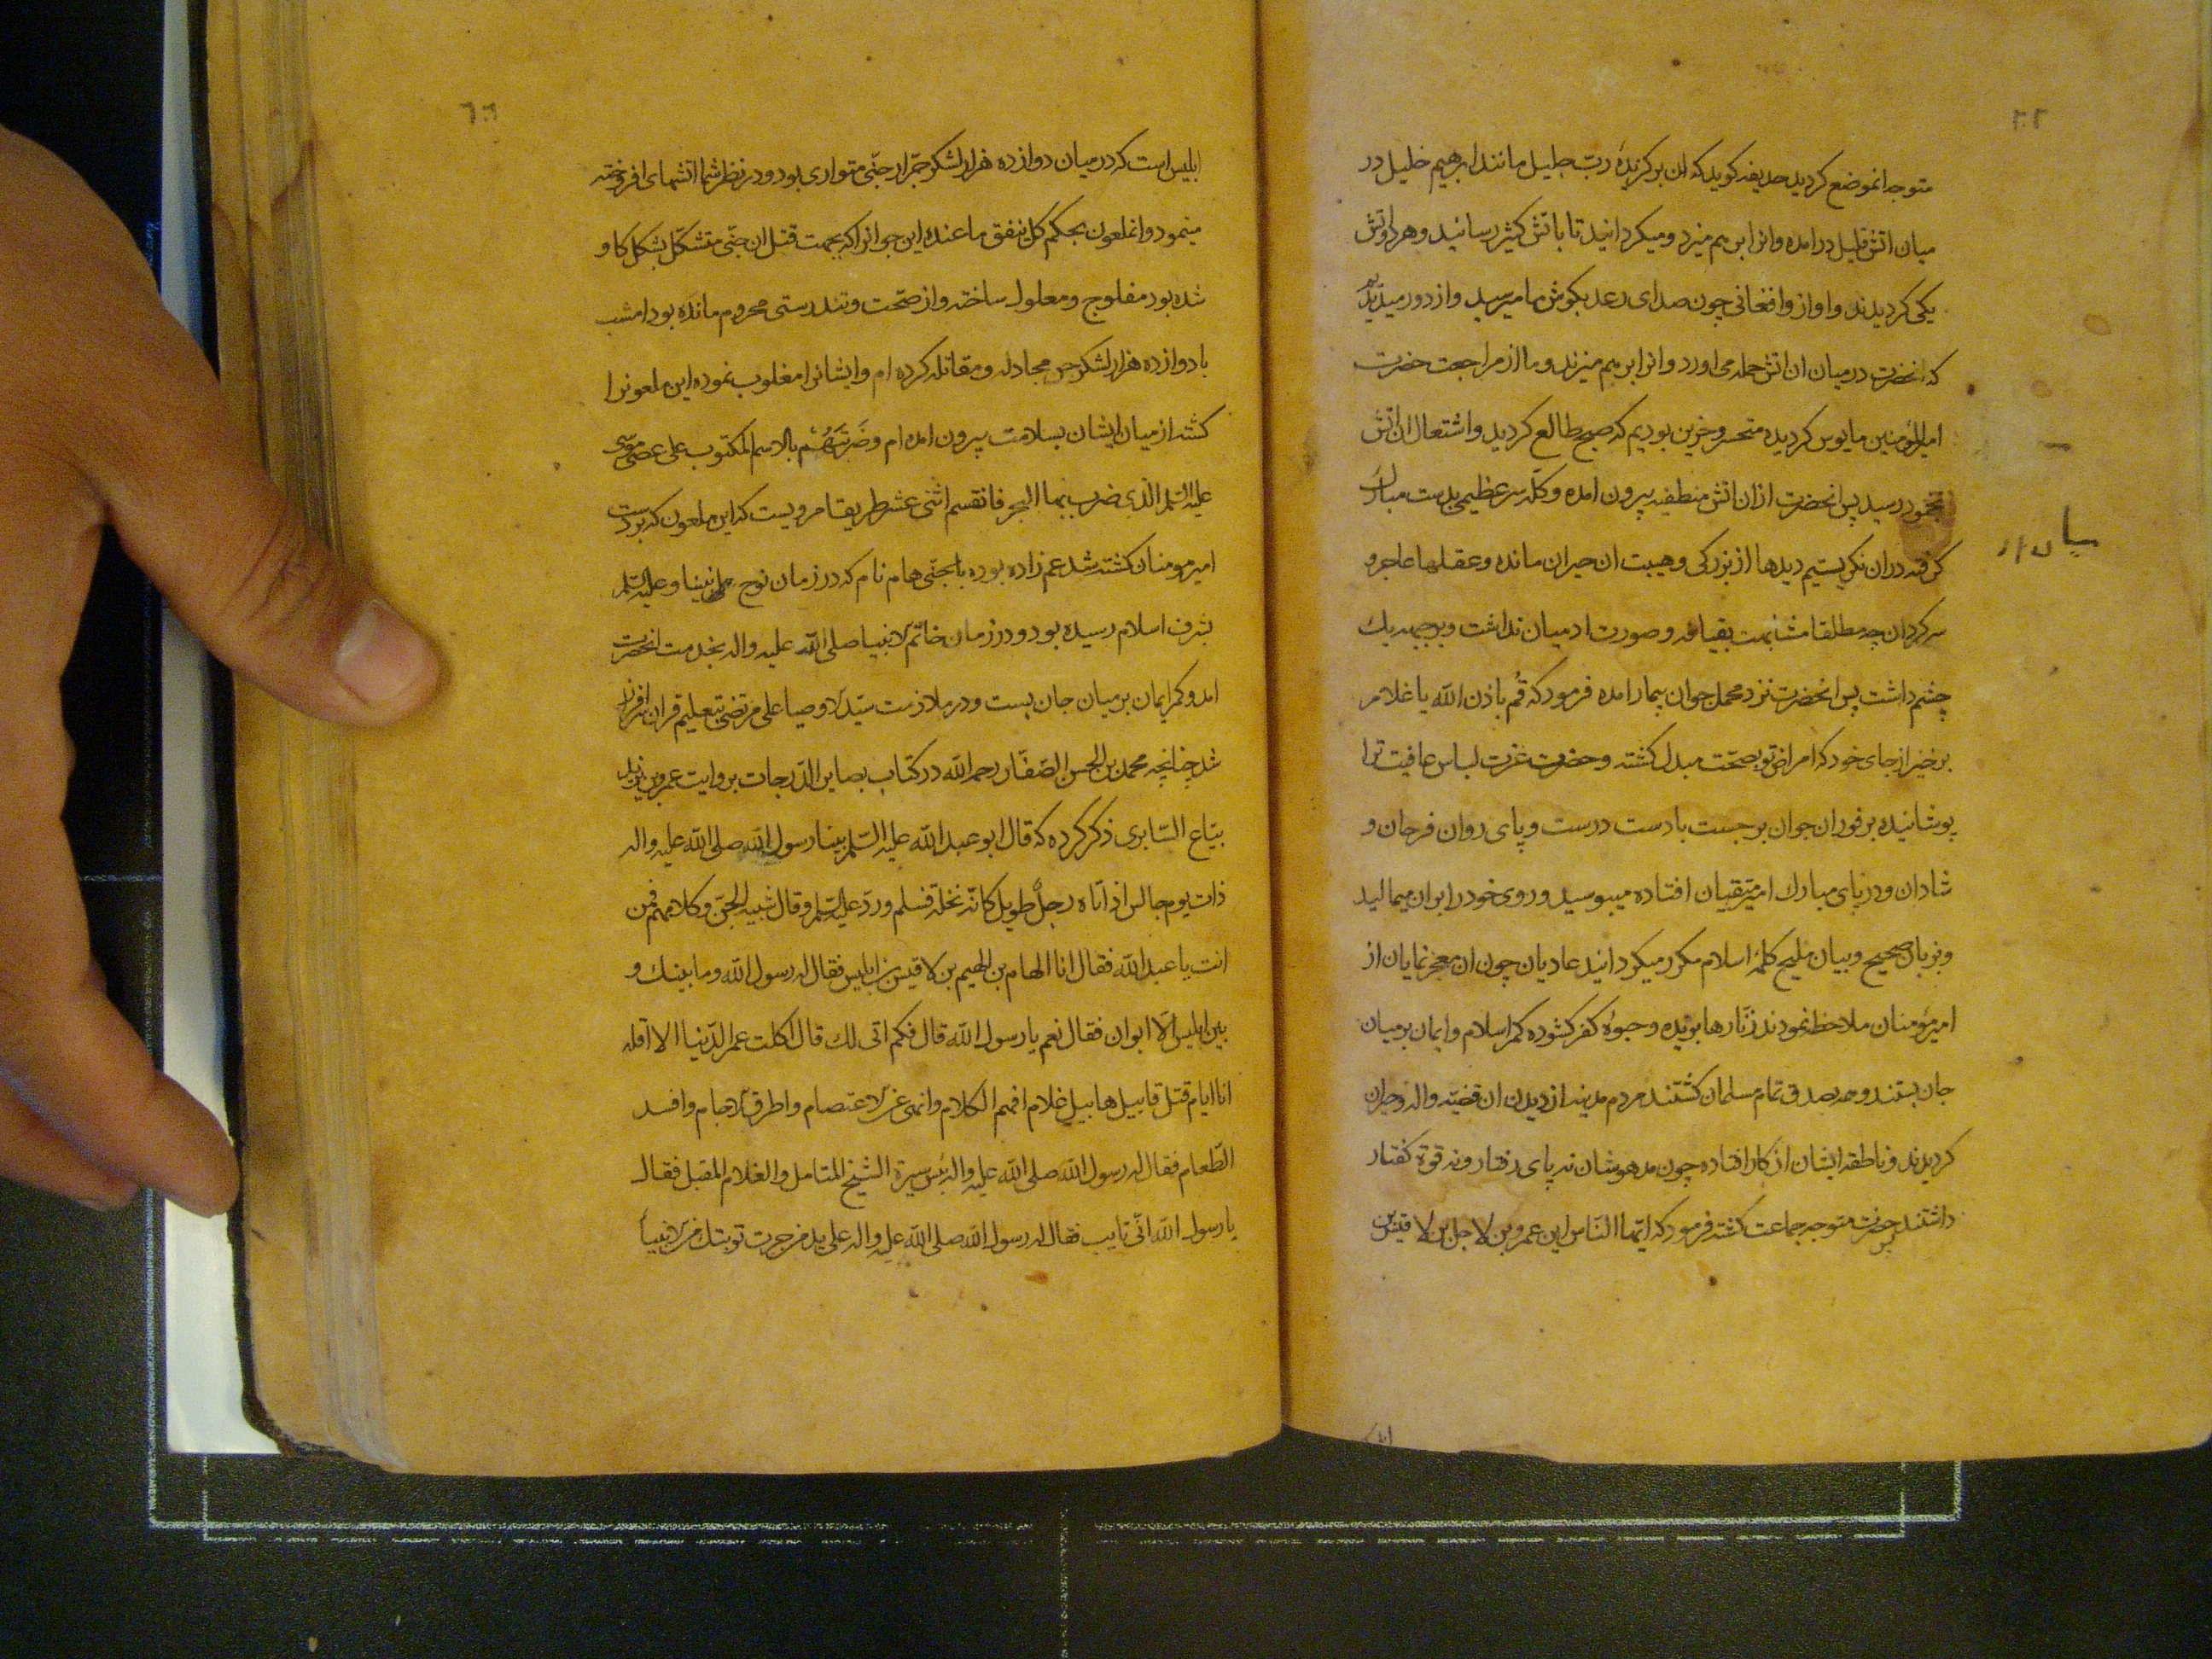 متوجه انموضع کردید حدیفه کوید که ان برکزیدهٔ ربّ جلیل مانند ابرهیم خلیل در
میان اتش قلیل درامده وانرا برهم میزد و میکردانید تا باتش کثیر رسانید و هر دو اتش
یکی کردیدند و اواز وافغانی چون صدای رعد بکوش ما میرسید و از دور میدیدیم
که انحضرت درمیان ان اتش حمله می اورد وانرا برهم میزند و ما از مراجعت حضرت
امیرالمؤمنین مایوس کردیده متحسر و حزین بودیم که صبح طالع کردید و اشتعال ان اتش
بخمود رسید پس انحضرت ازان اتش منطفیه بیرون امده و کلّه سر عظیمی بدست مبارک
کرفته دران نکریستیم دیدها از بزرکی و هیبت ان حیران مانده و عقلها عاجز و
سرکردان چه مطلقا مشابهت بقیافه و صورت ادمیان نداشت و بر جبهه یک
چشم داشت پس انحضرت نزد محمل جوان بیمار امده فرمود که قُم باذن الله یا غلام
برخیز از جای خود که امراض تو بصحّت مبدل کشته و حضرت عزت لباس عافیت ترا
پوشانیده بر فور ان جوان برجست با دست درست و پای روان فرحان و
شادان و در پای مبارک امیر متقیان افتاده میبوسید و روی خود را بران میمالید
و بزبان صحیح و بیان ملیح کلمهٔ اسلام مکرر میکردانید عادیان چون ان معجز نمایان از
امیر مؤمنان ملاحظه نمودند زنّارها بریده و حبوهٔ کفر کشوده کمر اسلام و ایمان برمیان
جان بستند و همه بصدق تمام مسلمان کشتند مردم مدینه از دیدن ان قضیّه واله و حیران
کردیدند و ناطقه ایشان از کار افتاده چون مدهوشان نه پای رفتار و نه قوة کفتار
داشتند حضرت متوجه جماعت کشته فرمود که ایّها النّاس این عمرو بن لاجل بن لاقیس بن
ابلیس است که درمیان دوازده هزار لشکر جرّار جنّی متواری بود و در نظر شما اتشهای افروخته
مینمود و انملعون بحکم کل ینفق ما عنده این جوانرا که بجهت قتل ان جنّی متشکّل بشکل کاو
شده بود مفلوج و معلول ساخته و از صحّت و تندرستی محروم مانده بود امشب
با دوازده هزار لشکر جن مجادله و مقاتله کرده ام و ایشانرا مغلوب نموده این ملعونرا
کشته از میان ایشان بسلامت بیرون امده ام و ضَرَبْتُهُمْ بالاسم المکتوب علی عصی موسی
علیه السّلم الّذی ضرب بها البحر فانقسم اثنی عشر طریقا مرویست که این ملعون که بر دست
امیر مومنان کشته شد عم زاده بوده با جنّی هام نام که در زمان نوح علی نبینا و علیه السلم
بشرف اسلام رسیده بود و در زمان خاتم الانبیا صلی الله علیه واله بخدمت انحضرت
امد و کمر ایمان برمیان جان بست و در ملازمت سیّد الاوصیا علی مرتضی بتعلیم قران سرافراز
شد چنانچه محمد بن الحسن الصّفار رحمه الله در کتاب بصایر الدّرجات بروایت عمر بن یزید
بیّاع السّابری ذکر کرده که قال ابو عبد الله علیه السّلم بینا رسول الله صلی الله علیه واله
ذات یوم جالس اذ اتاه رجلٌ طویل کانّه نخلة فسلم وردّ علیه السّلم وقال شبیه الجنّ وکلامهم فمن
انت یا عبد الله فقال انا الهام بن الهیم بن لاقیس بن ابلیس فقال له رسول الله وما بینک و
بین ابلیس الّا ابوان فقال نعم یا رسول الله قال فکم اتی لک قال اکلت عمر الدّنیا الا اقله
انا ایام قتل قابیل هابیل غلام افهم الکلام وانهی عن الاعتصام واطرق الاجام وافسد
الطّعام فقال له رسول الله صلی الله علیه واله بئس سیرة الشیخ المتامل والغلام المقبل فقال
یا رسول الله انّی تایب فقال له رسول الله صلی الله علیه واله علی ید من جرت توبتک من الانبیآ